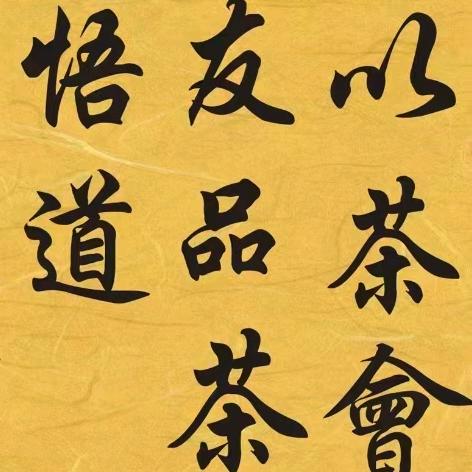 以茶會
友品茶
悟道